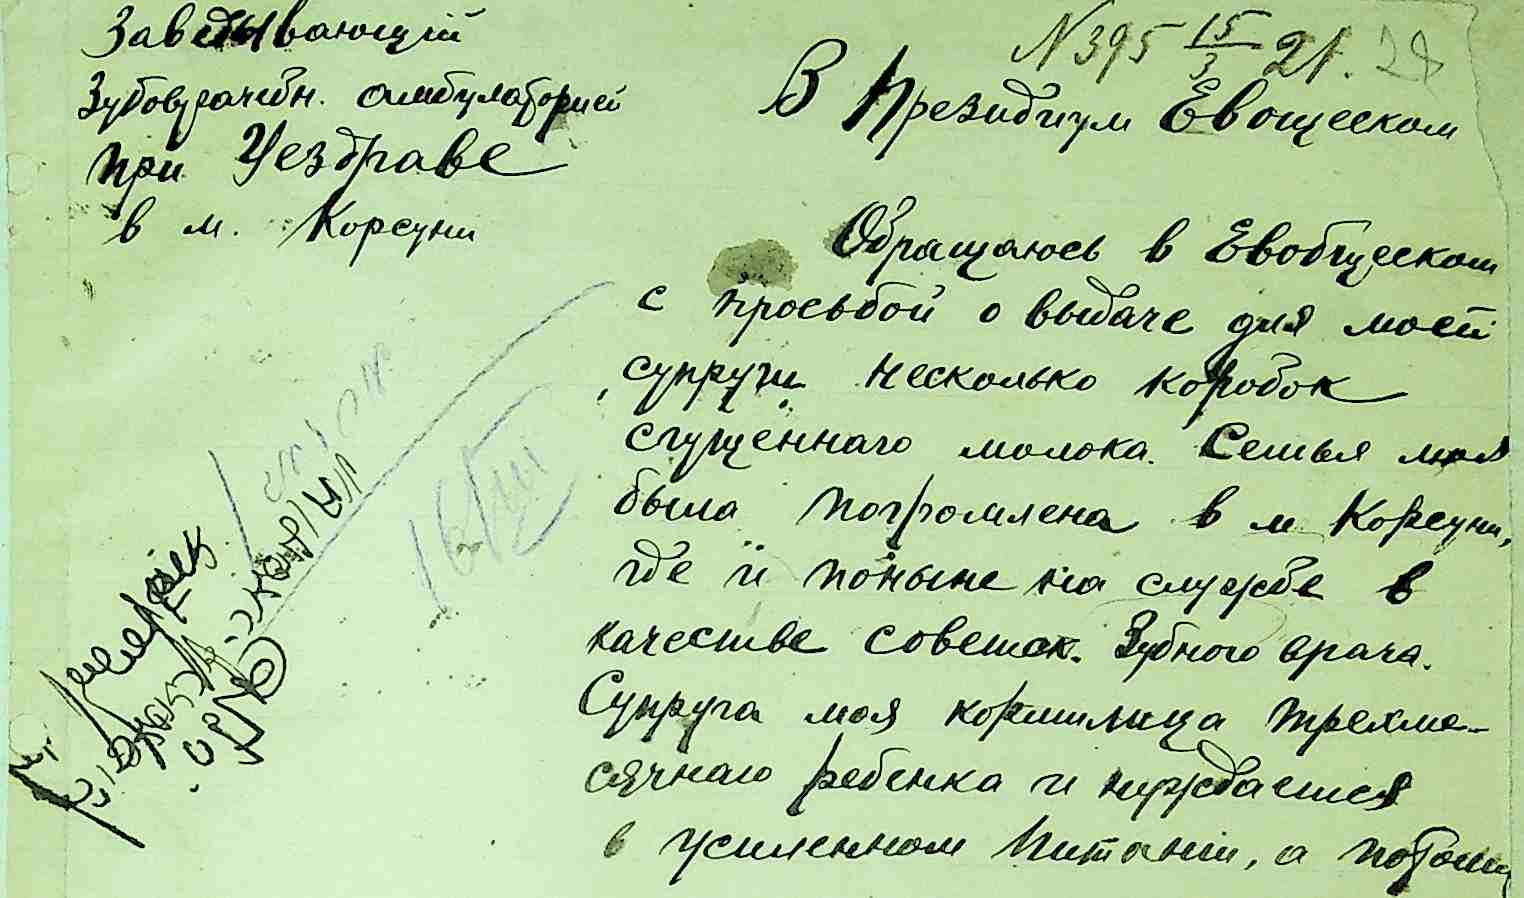 Заведывающій
Зубоврачебн. амбулаторией
при Уездраве
в м. Корсуни
N 395 15/3 21. 28
В Президиум Евощеском
Обращаюсь в Евобщеском
с просьбой о выдаче для моей
супруги несколько коробок
сгущённаго молока. Семья моя
была погромлена в м Корсуни,
где и поныне на службе в
качестве советск. Зубного врача.
Супруга моя кормилица трехме-
сячнаго ребенка и нуждается
в усиленном питании, а потому
16/III